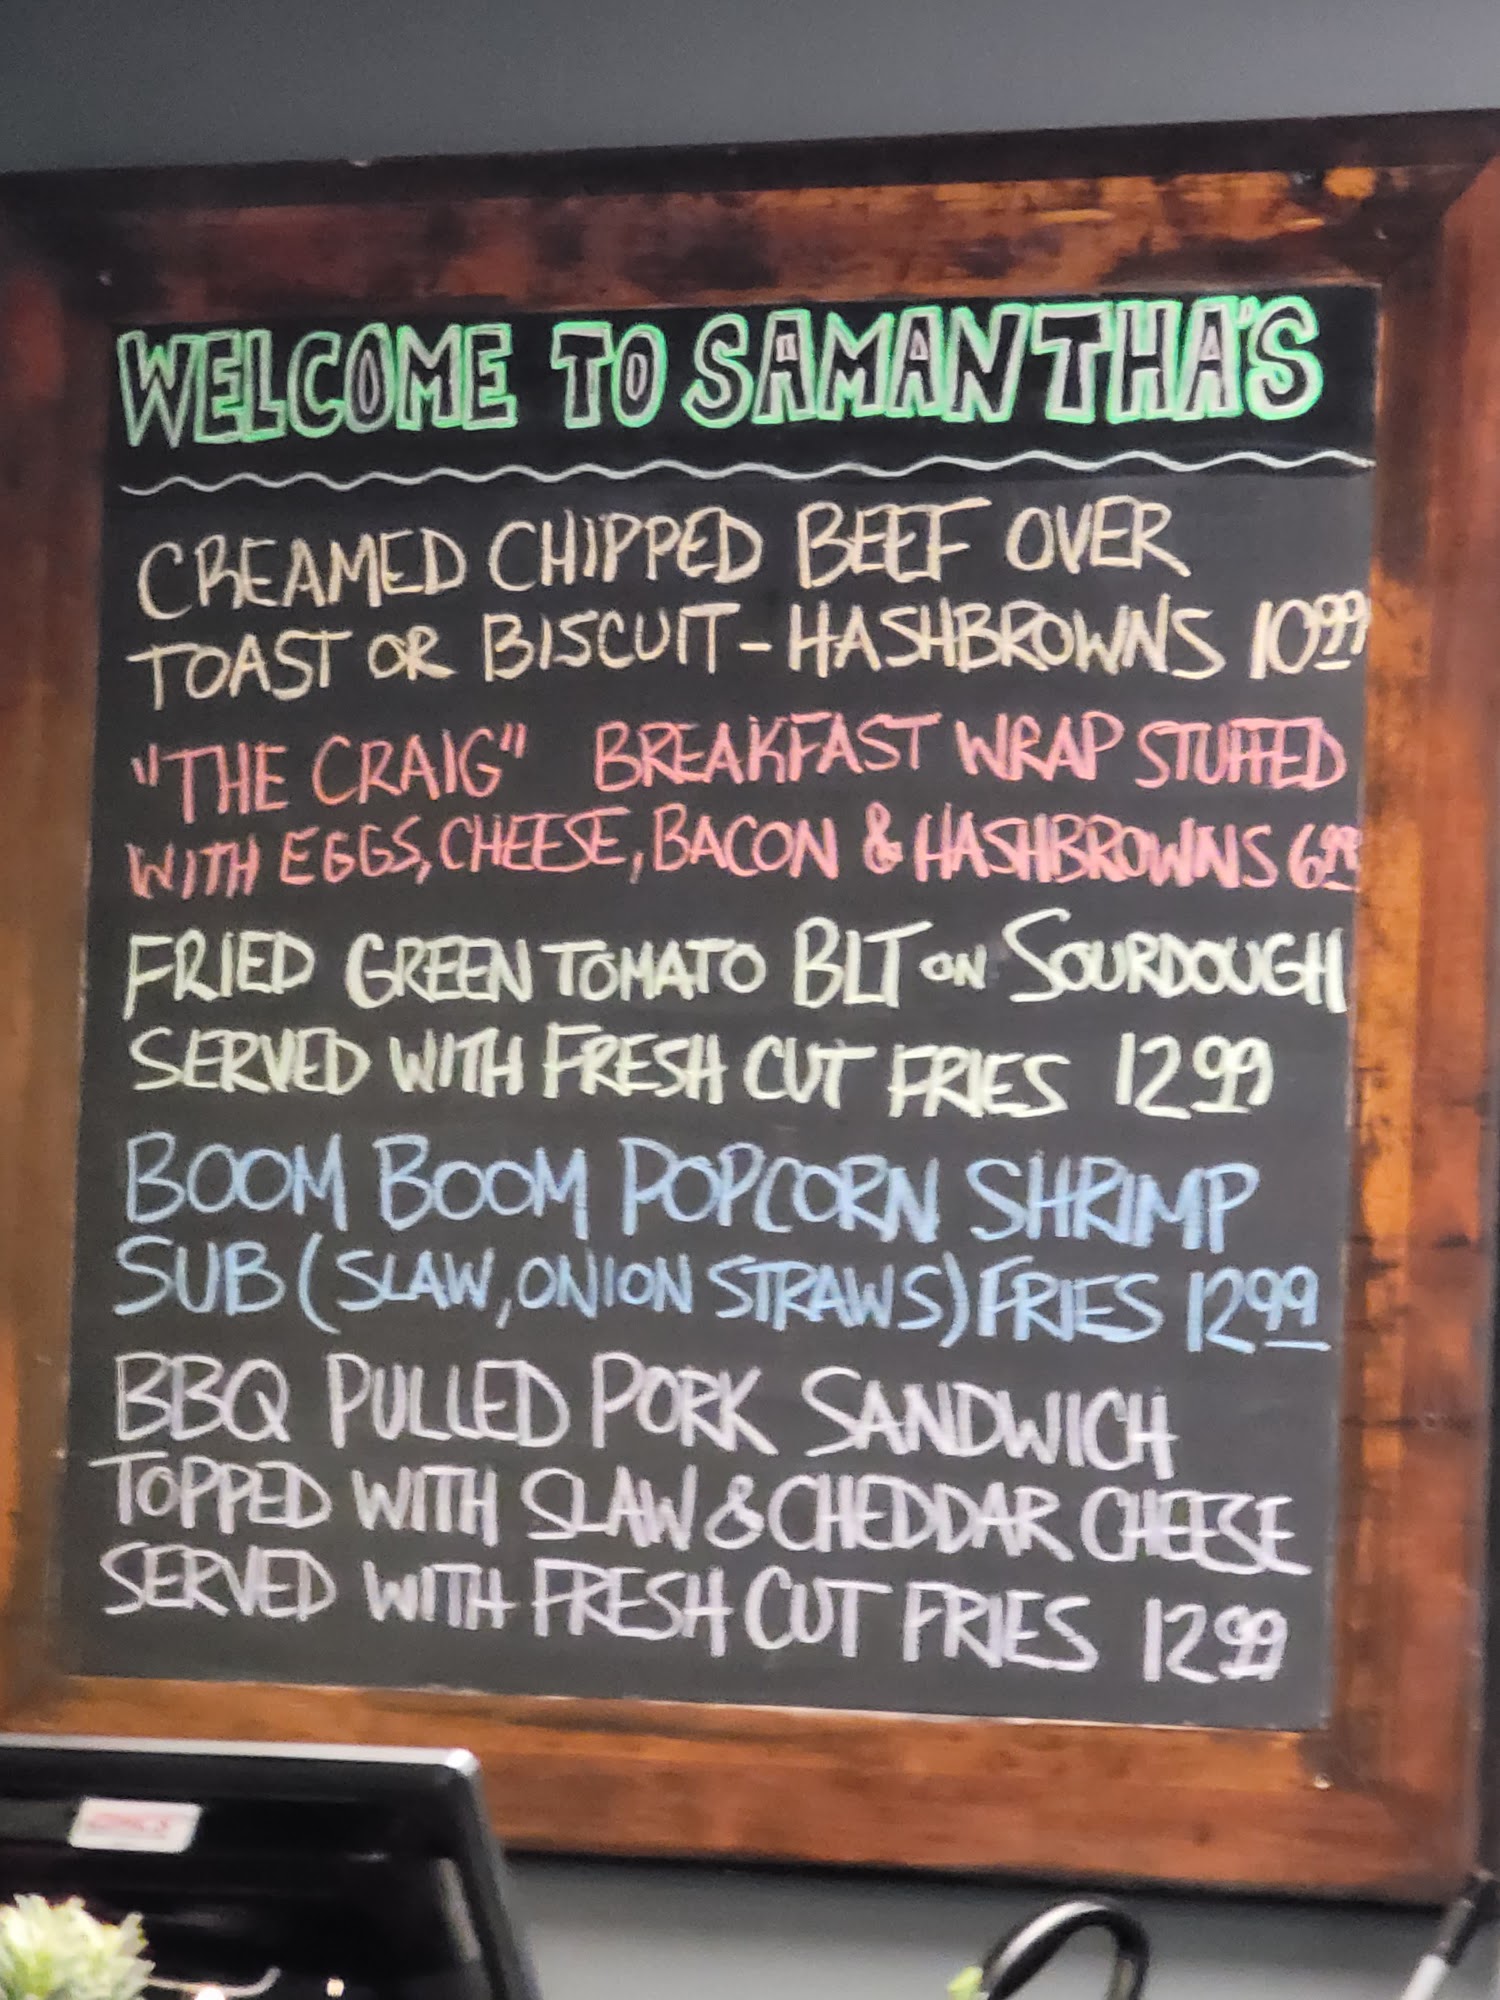 WELCOME TO SAMANTHA'S
CREAMED CHIPPED BEEF OVER
TOAST OR BISCUIT - HASHBROWNS 10.99
"THE CRAIG" BREAKFAST WRAP STUFFED
WITH EGGS, CHEESE, BACON & HASHBROWNS 6.99
FRIED GREEN TOMATO BLT ON SOURDOUGH
SERVED WITH FRESH CUT FRIES 12.99
BOOM BOOM POPCORN SHRIMP
SUB (SLAW, ONION STRAWS) FRIES 12.99
BBQ PULLED PORK SANDWICH
TOPPED WITH SLAW & CHEDDAR CHEESE
SERVED WITH FRESH CUT FRIES 12.99